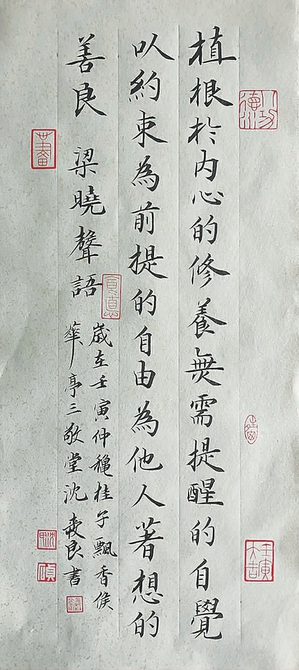 植根於内心的修養無需提醒的自覺
以約束為前提的自由為他人著想的
善良 梁曉聲語
歲在壬寅仲穐桂子飄香侯
華亭三敬堂沈良書
壬寅大吉